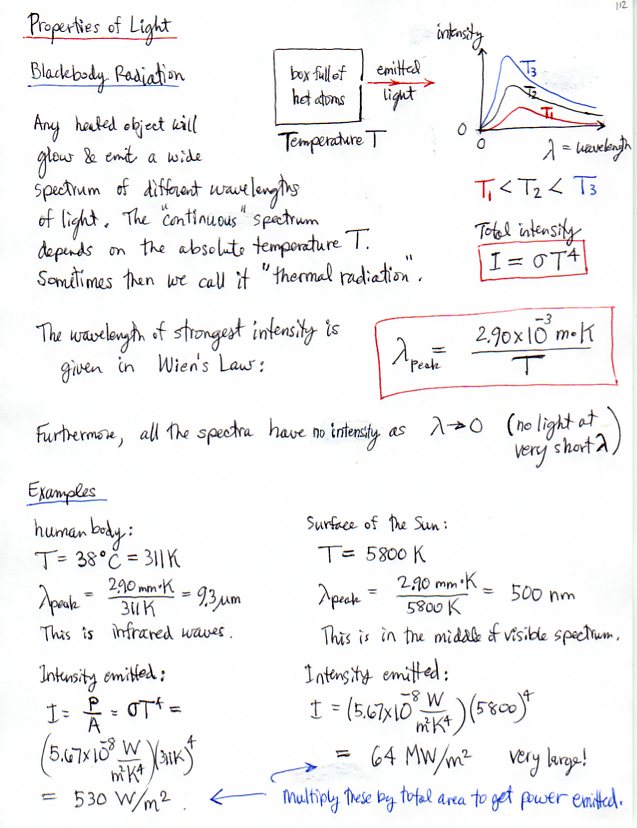 112
Properties of Light
Blackbody Radiation
box full of
hot atoms
emitted
light
Temperature T
intensity
T₃
T₂
T₁
0
0
λ = wavelength
T₁ < T₂ < T₃
Any heated object will
glow & emit a wide
spectrum of different wavelengths
of light. The "continuous" spectrum
depends on the absolute temperature T.
Sometimes then we call it "thermal radiation".
Total intensity
I = σT⁴
The wavelength of strongest intensity is
given in Wien's Law:
λpeak = 2.90×10⁻³ m·K / T
Furthermore, all the spectra have no intensity as λ→0 (no light at
very short λ)
Examples
human body:
T = 38°C = 311K
λpeak = 2.90 mm·K / 311K = 9.3 μm
This is infrared waves.
Intensity emitted:
I = P/A = σT⁴ =
(5.67×10⁻⁸ W/m²K⁴)(311K)⁴
= 530 W/m².
Surface of the Sun:
T = 5800 K
λpeak = 2.90 mm·K / 5800 K = 500 nm
This is in the middle of visible spectrum.
Intensity emitted:
I = (5.67×10⁻⁸ W/m²K⁴)(5800)⁴
= 64 MW/m² very large!
Multiply these by total area to get power emitted.